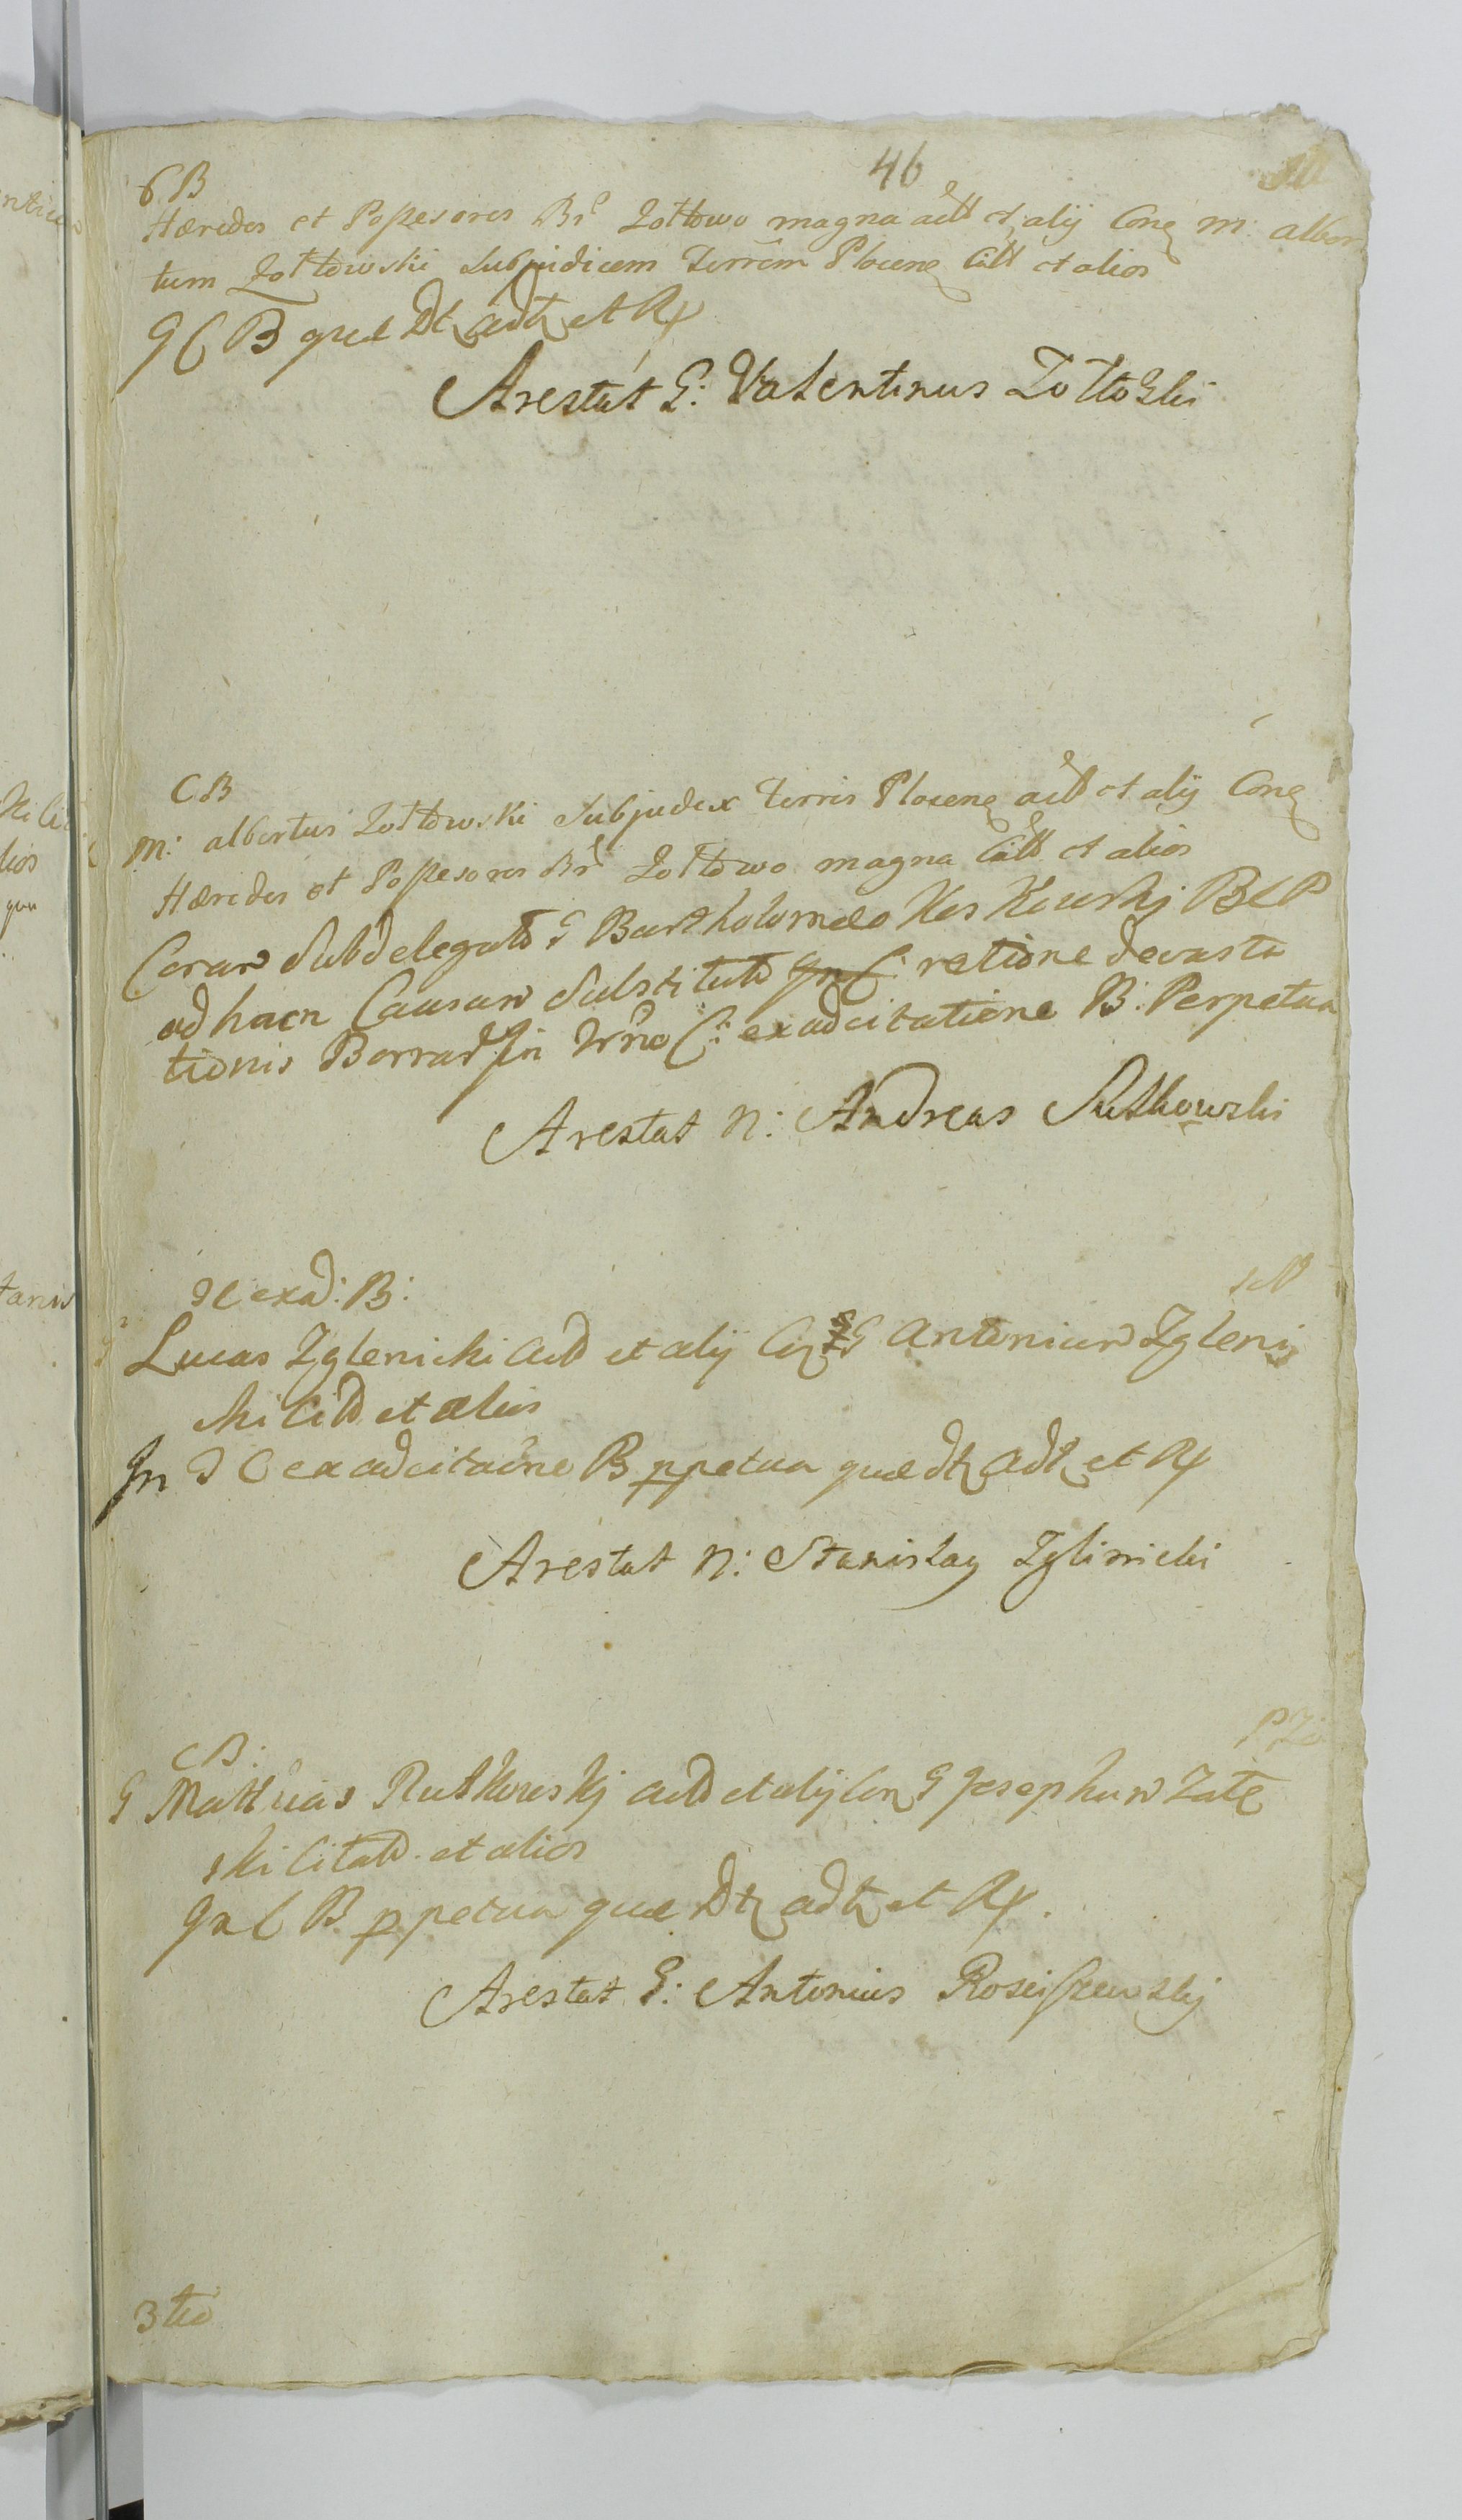 46
C B
Hæredes et Possesores Br Zołtowo magna actt et alij Con M: alber
tum Zołtowski Subjudicem Terrem Plocen Citt et alios
In C B quæ Dt adt et Rp
Arestat G: Valentinus Zołtoski
C B
M: albertus Zołtowski Subjudex Terris Plocen actt et alij Con
Hæredes et Possesores Br Zołtowo magna Citt et alios
Coram Subdelegato G Bartholomeo Kos Kowskj B C P
ad hacn Causam Substituto In C: ratione devasta
tionis Borrar In Trno C: exadcitatione B: Perpetua
Arestat N: Andreas Sutkowski
C exad: B:
Lucas Zglenicki actt et alij Con G Antonium Zgleni
cki Citt et alios
In C exadcitaone B ppetua quæ dt adt et Rp
Arestat N: Stanislaus Zglinicki
C B:
G Mathias Rutkowskj actt et alij Con G Josephum Zale
ski Citatt. et alios
In C B ppetua quæ Dt adt et Rp.
Arestat G: Antonius Rosciszewskj
3tio